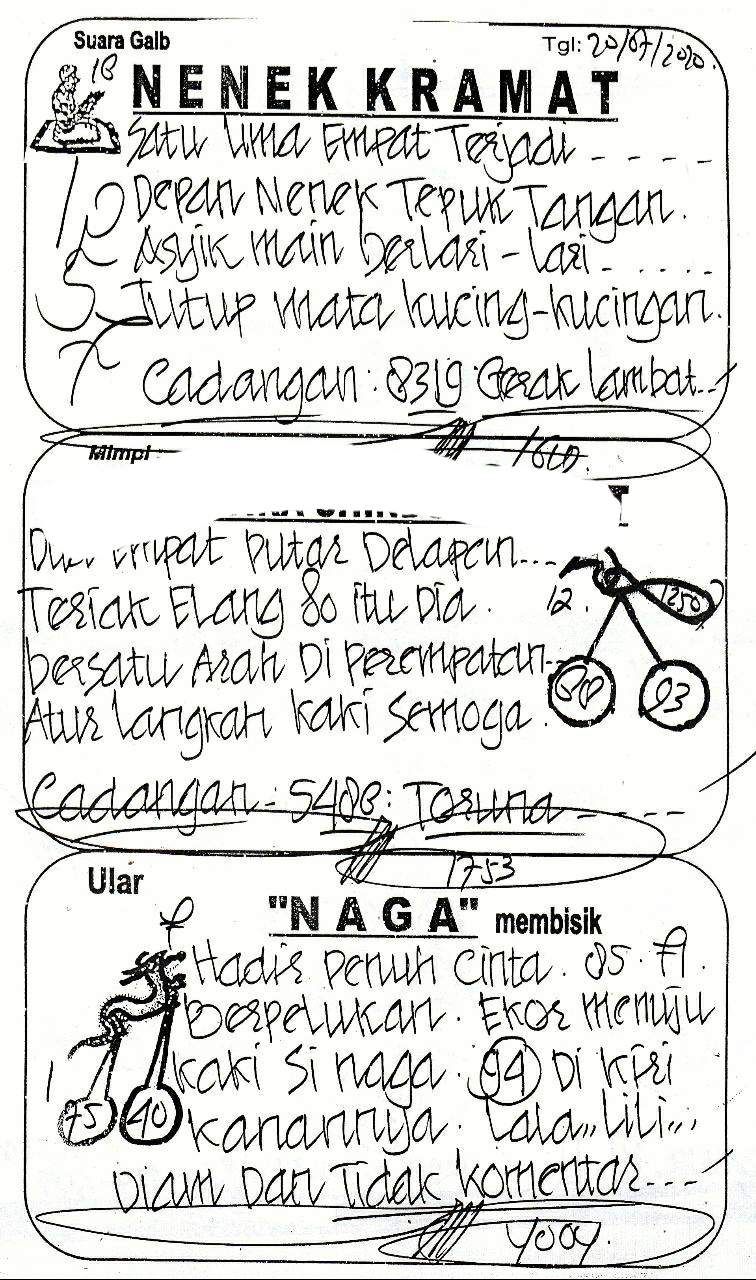 Suara Galb
Tgl: 20/07/2020.
18
NENEK KRAMAT
Satu lima Empat Terjadi - - - -
Depan Nenek Tepuk Tangan.
Asyik main berlari-lari. . . . .
Tutup mata kucing-kucingan.
Cadangan: 8319 Gerak lambat..
Mimpi
empat putar Delapan...
Teriak Elang 80 itu Dia.
12.
1250
bersatu Arah Di perempatan..
93
Atur langkah kaki semoga.
Cadangan: 5486: Toruna - - - -
1753
Ular
"NAGA" membisik
Hadir penuh cinta. 05.
Berpelukan. Ekor menuju
kaki si naga. 94 Di kiri
1
75 40
kanannya. Lala,, Lili,,,
Diam Dan Tidak komentar---